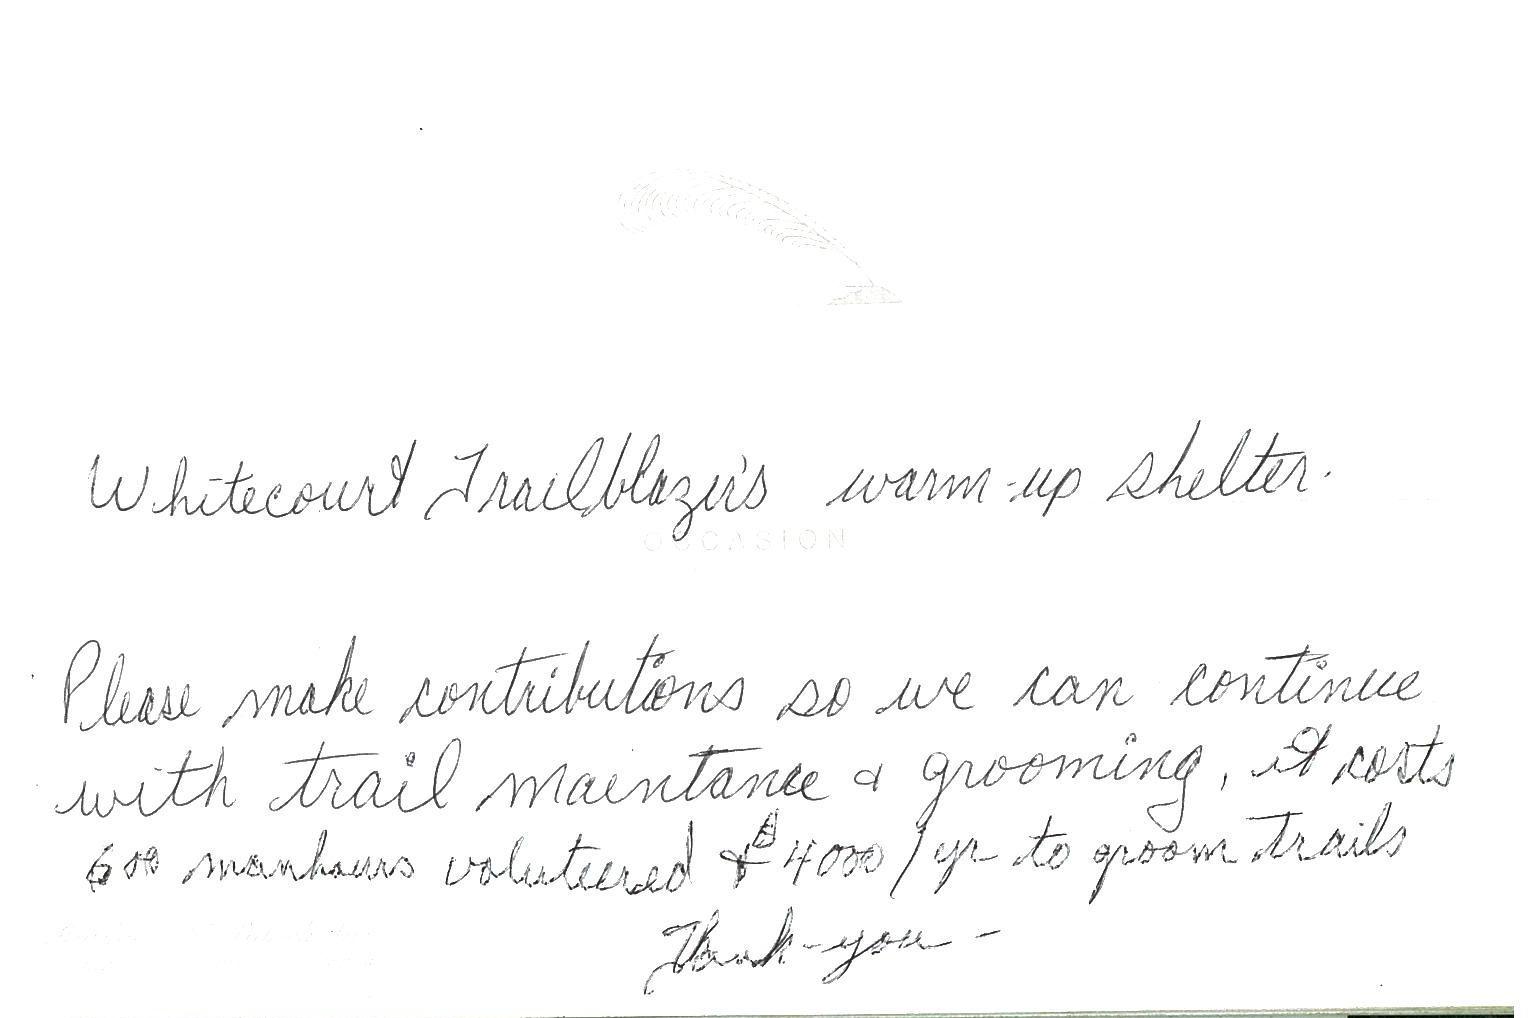 Whitecourt Trailblazer's warm-up shelter.
OCCASION
Please make contributions so we can continue
with trail maentance & grooming, it costs
600 manhours voluteered & $4000/yr to groom trails
Thank-you -